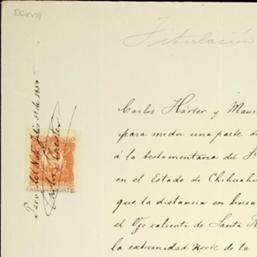 DCXVIII
Titulación
Carlos Hárter y Mau
para medir una parte d
á la testamentaria del S
en el Estado de Chihuahu
que la distancia en linea
el Ojo caliente de Santa R
la extremidad Norte de la
Paso del Norte Julio 31 de